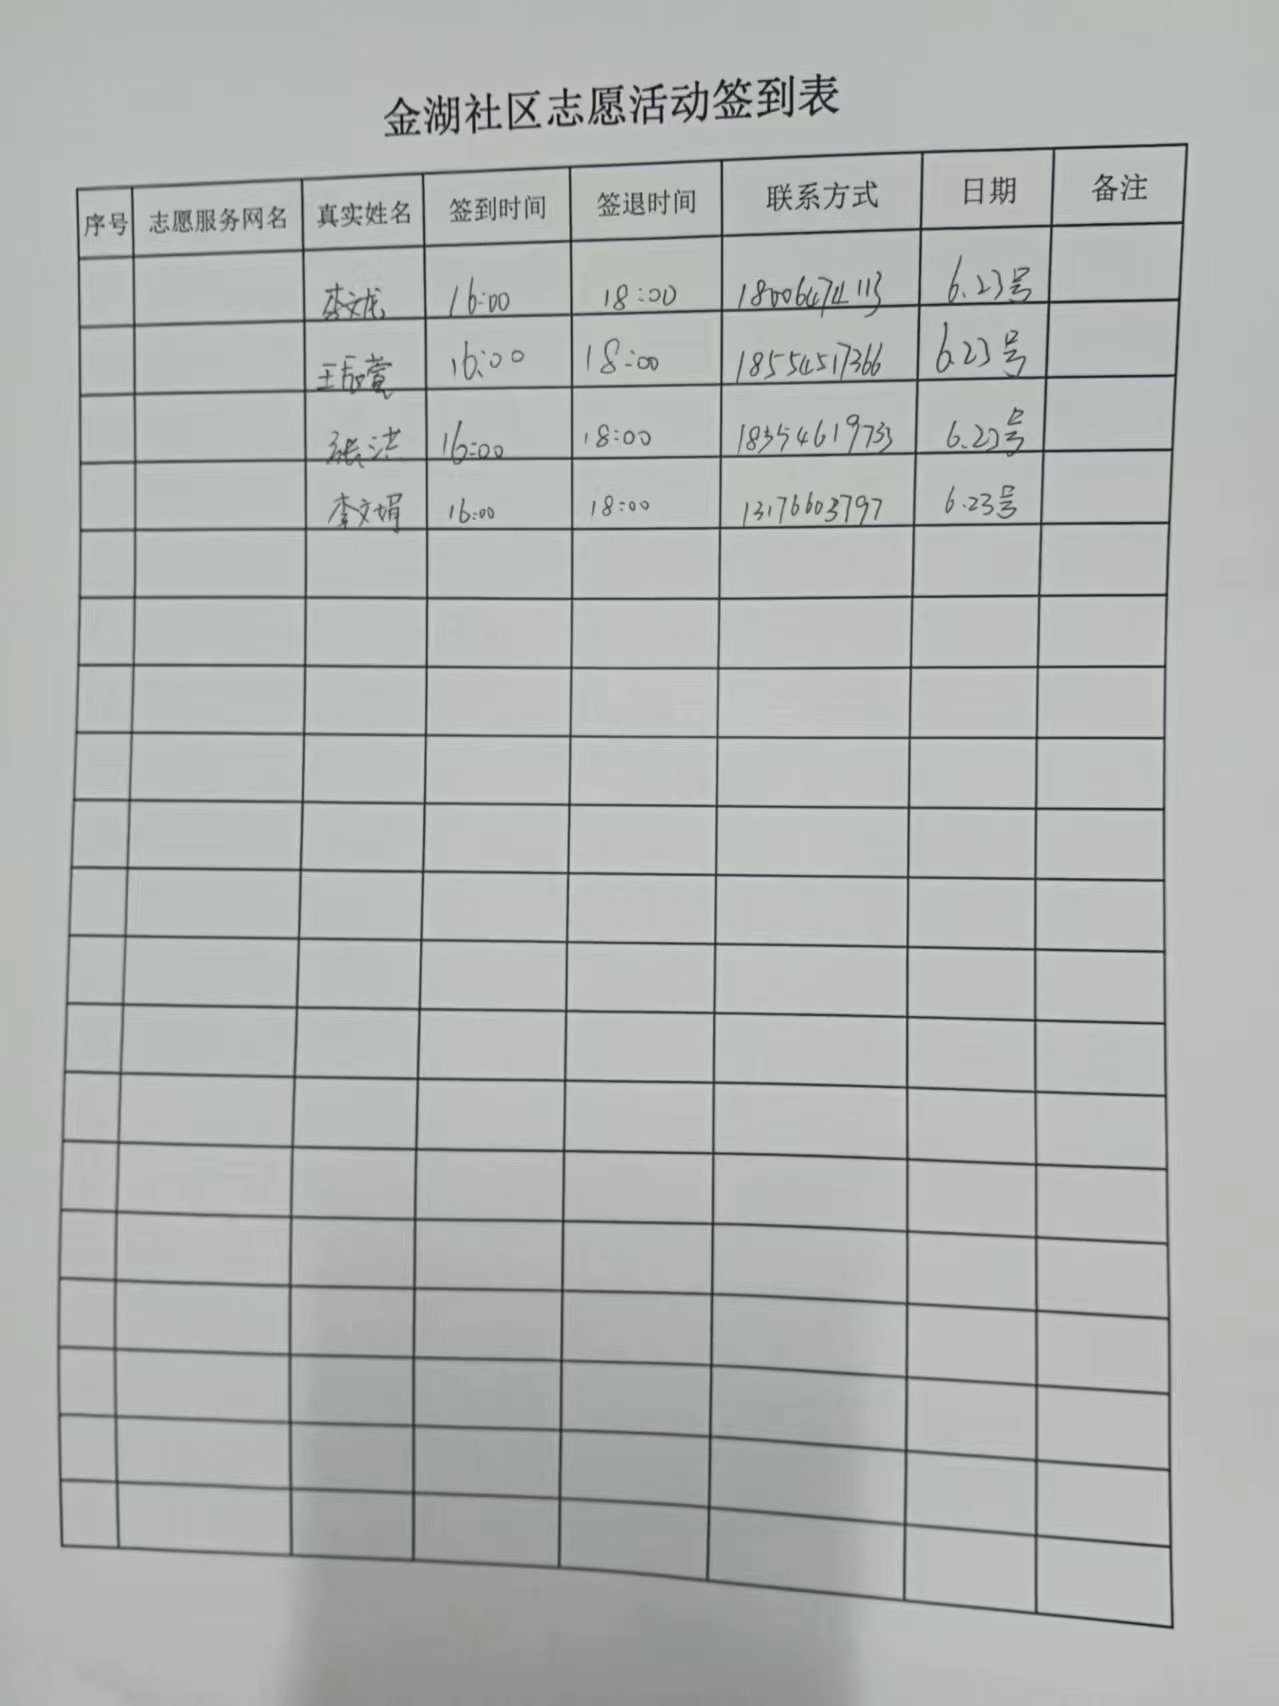 金湖社区志愿活动签到表
序号 志愿服务网名 真实姓名 签到时间 签退时间 联系方式 日期 备注
李文龙 16:00 18:00 18006474113 6.23号
王辰萱 16:00 18:00 18554517366 6.23号
张洪 16:00 18:00 18354619733 6.23号
李文娟 16:00 18:00 13176603797 6.23号